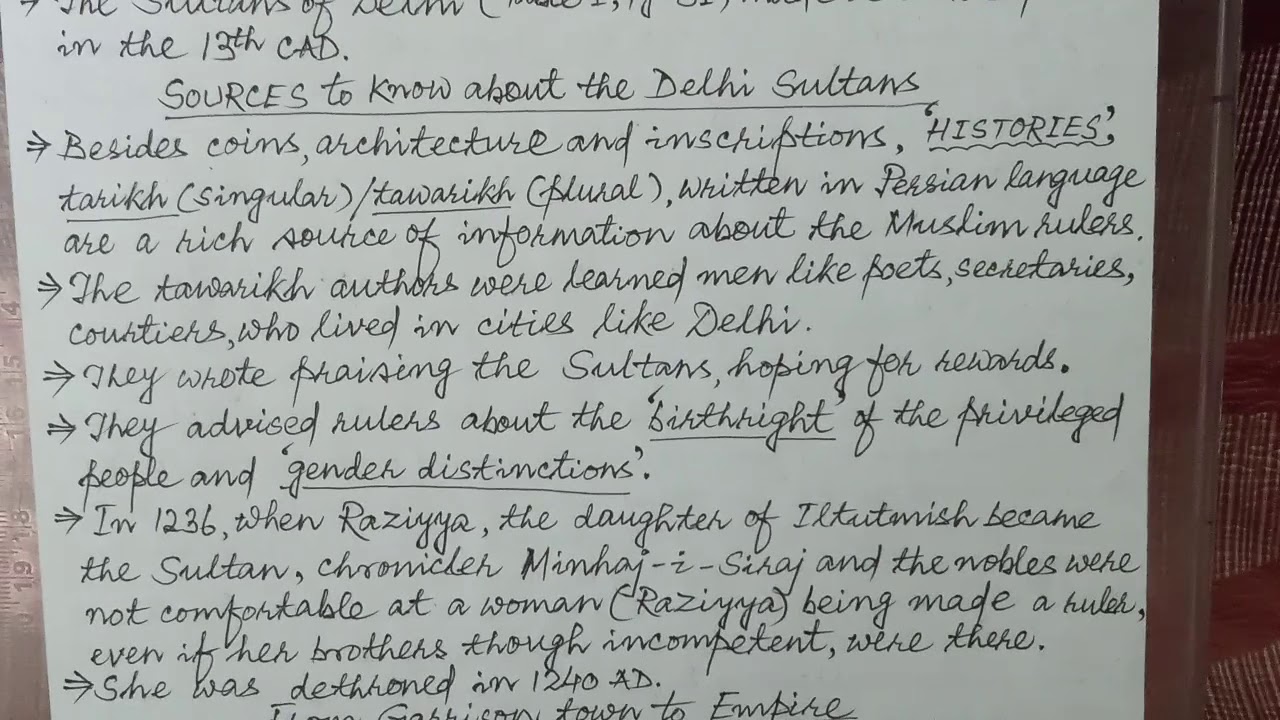 → The Sultans of Delhi (Table 1,
in the 13th CAD.
SOURCES to know about the Delhi Sultans
⇒ Besides coins, architecture and inscriptions, 'HISTORIES',
tarikh (singular)/tawarikh (plural), written in Persian language
are a rich source of information about the Muslim rulers.
⇒ The tawarikh authors were learned men like poets, secretaries,
courtiers, who lived in cities like Delhi.
⇒ They wrote praising the Sultans, hoping for rewards.
⇒ They advised rulers about the 'birthright' of the privileged
people and 'gender distinctions'.
⇒ In 1236, when Raziyya, the daughter of Iltutmish became
the Sultan, chronicler Minhaj-i-Siraj and the nobles were
not comfortable at a woman (Raziyya) being made a ruler,
even if her brothers though incompetent, were there.
⇒ She was dethroned in 1240 AD.
From Garrison town to Empire